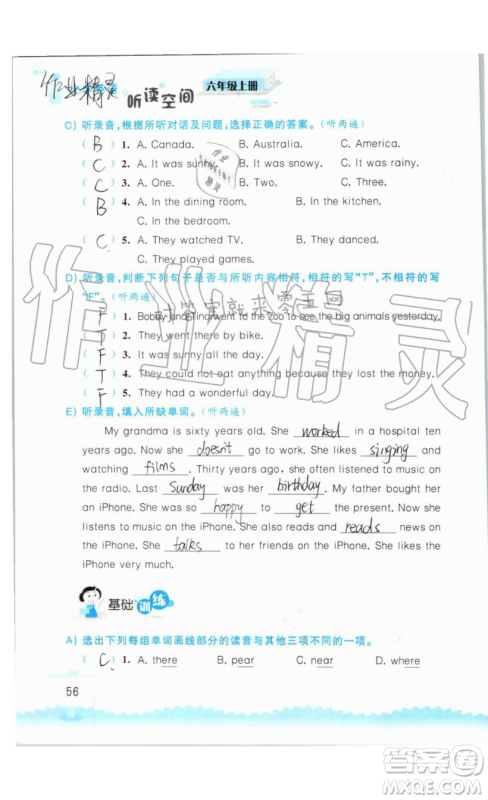 作业精灵
听读空间 六年级上册
C) 听录音,根据所听对话及问题,选择正确的答案。(听两遍)
( B ) 1. A. Canada. B. Australia. C. America.
( C ) 2. A. It was sunny. B. It was snowy. C. It was rainy.
( C ) 3. A. One. B. Two. C. Three.
( B ) 4. A. In the dining room. B. In the kitchen.
C. In the bedroom.
( C ) 5. A. They watched TV. B. They danced.
C. They played games.
D) 听录音,判断下列句子是否与所听内容相符,相符的写“T”,不相符的写
“F”。(听两遍)
( F ) 1. Bobby and Ting went to the zoo to see the big animals yesterday.
( T ) 2. They went there by bike.
( F ) 3. It was sunny all the day.
( T ) 4. They could not eat anything because they lost the food.
( F ) 5. They had a wonderful day.
E) 听录音,填入所缺单词。(听两遍)
My grandma is sixty years old. She worked in a hospital ten
years ago. Now she doesn't go to work. She likes singing and
watching films. Thirty years ago, she often listened to music on
the radio. Last Sunday was her birthday. My father bought her
an iPhone. She was so happy to get the present. Now she
listens to music on the iPhone. She also reads reads news on
the iPhone. She talks to her friends on the iPhone. She likes the
iPhone very much.
基础训练
A) 选出下列每组单词画线部分的读音与其他三项不同的一项。
( C ) 1. A. there B. pear C. near D. where
56
作业精灵
答案圈
MXQE.COM